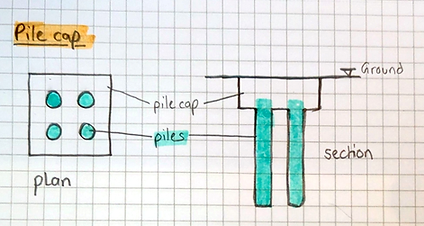 Pile cap
Ground
pile cap
piles
section
plan